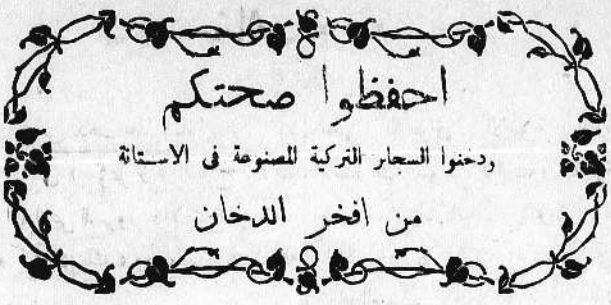 احفظوا صحتكم
ردخنوا السجار التركية المصنوعة فى الاستانة
من افخر الدخان